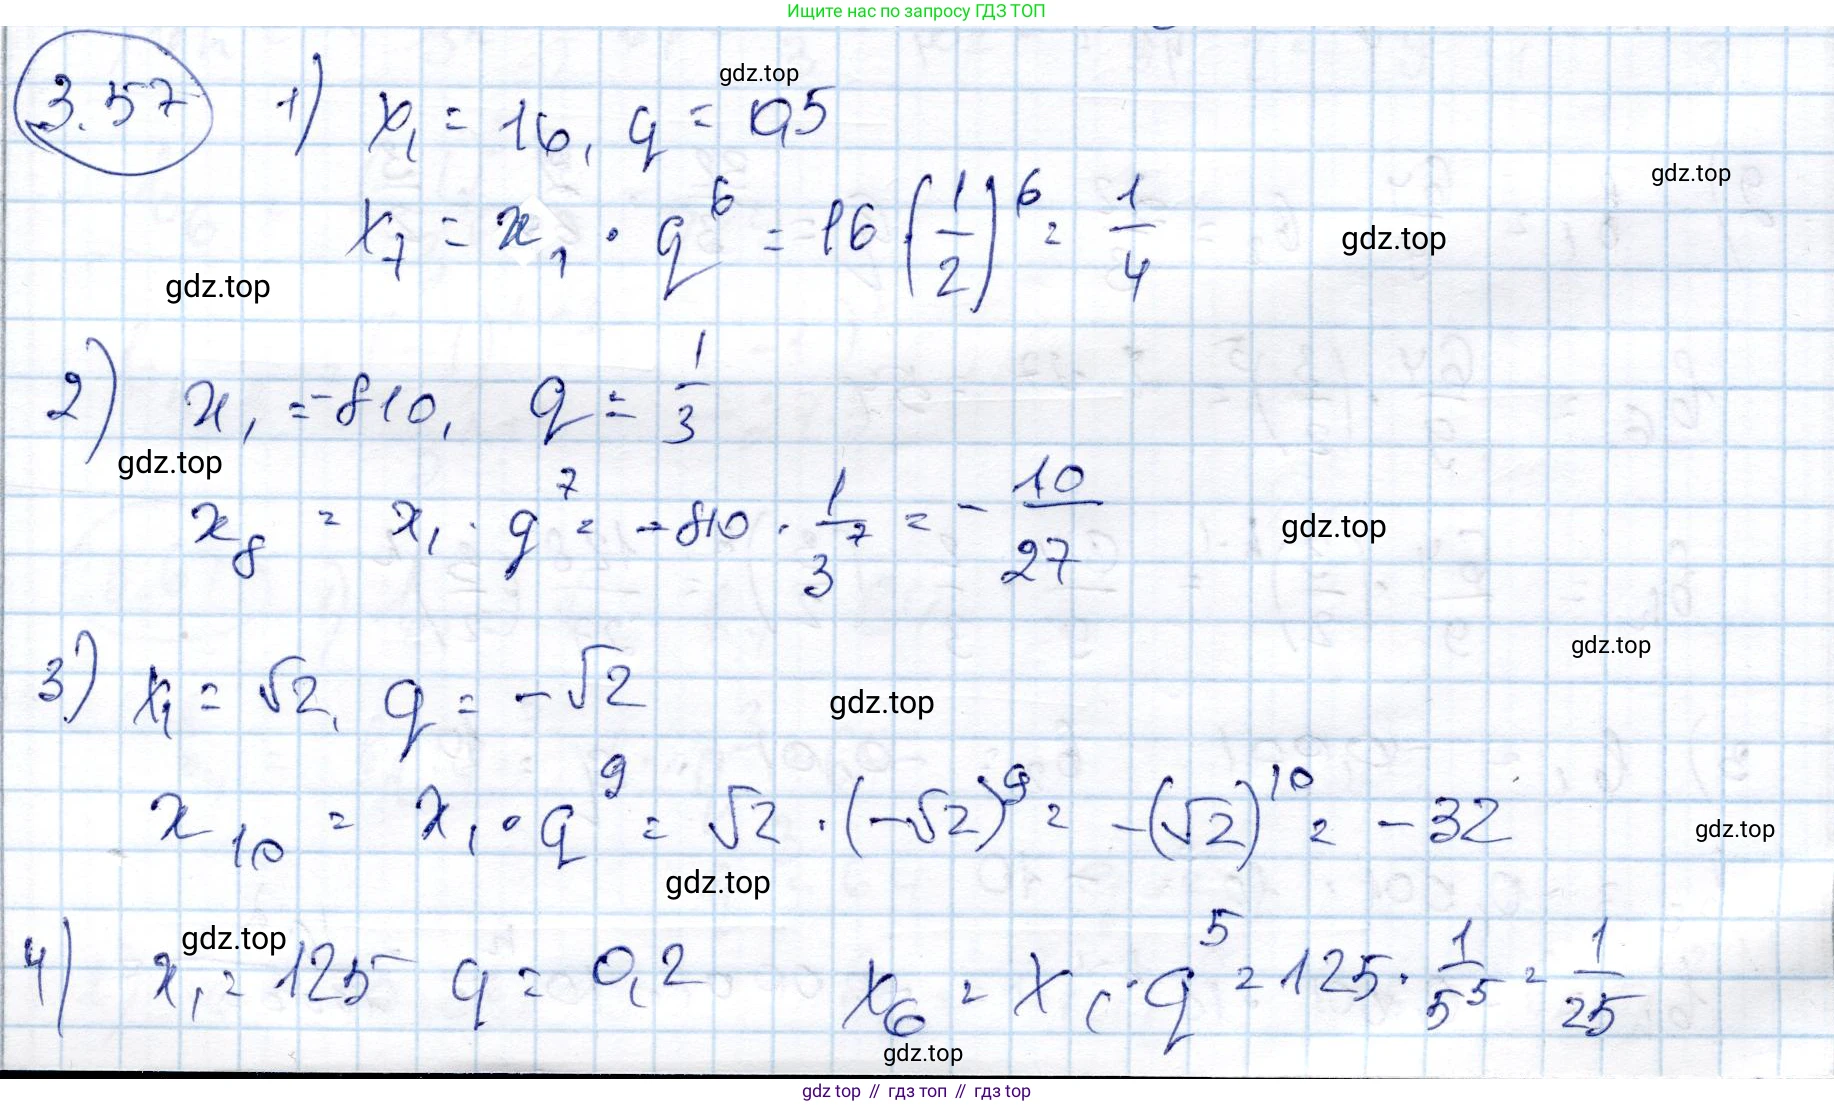 Ищите нас по запросу ГДЗ ТОП
3.57 1) x₁ = 16, q = 0,5
gdz.top
gdz.top
x₇ = x₁ · q⁶ = 16 (1/2)⁶ = 1/4
gdz.top
gdz.top
2) x₁ = -810, q = 1/3
gdz.top
x₈ = x₁ · q⁷ = -810 · 1/3⁷ = -10/27
gdz.top
gdz.top
3) x₁ = √2, q = -√2
gdz.top
x₁₀ = x₁ · q⁹ = √2 · (-√2)⁹ = -(√2)¹⁰ = -32
gdz.top
gdz.top
gdz.top
4) x₁ = 125 q = 0,2 x₆ = x₁ · q⁵ = 125 · 1/5⁵ = 1/25
gdz.top
gdz top // гдз топ // гдз top